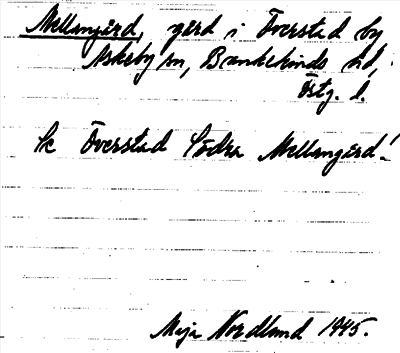 Mellangård, gård i Överstad by
Askeby sn, Bankekinds hd,
Östg. l.
Se Överstad Södra Mellangård!
Maja Nordlund 1945.